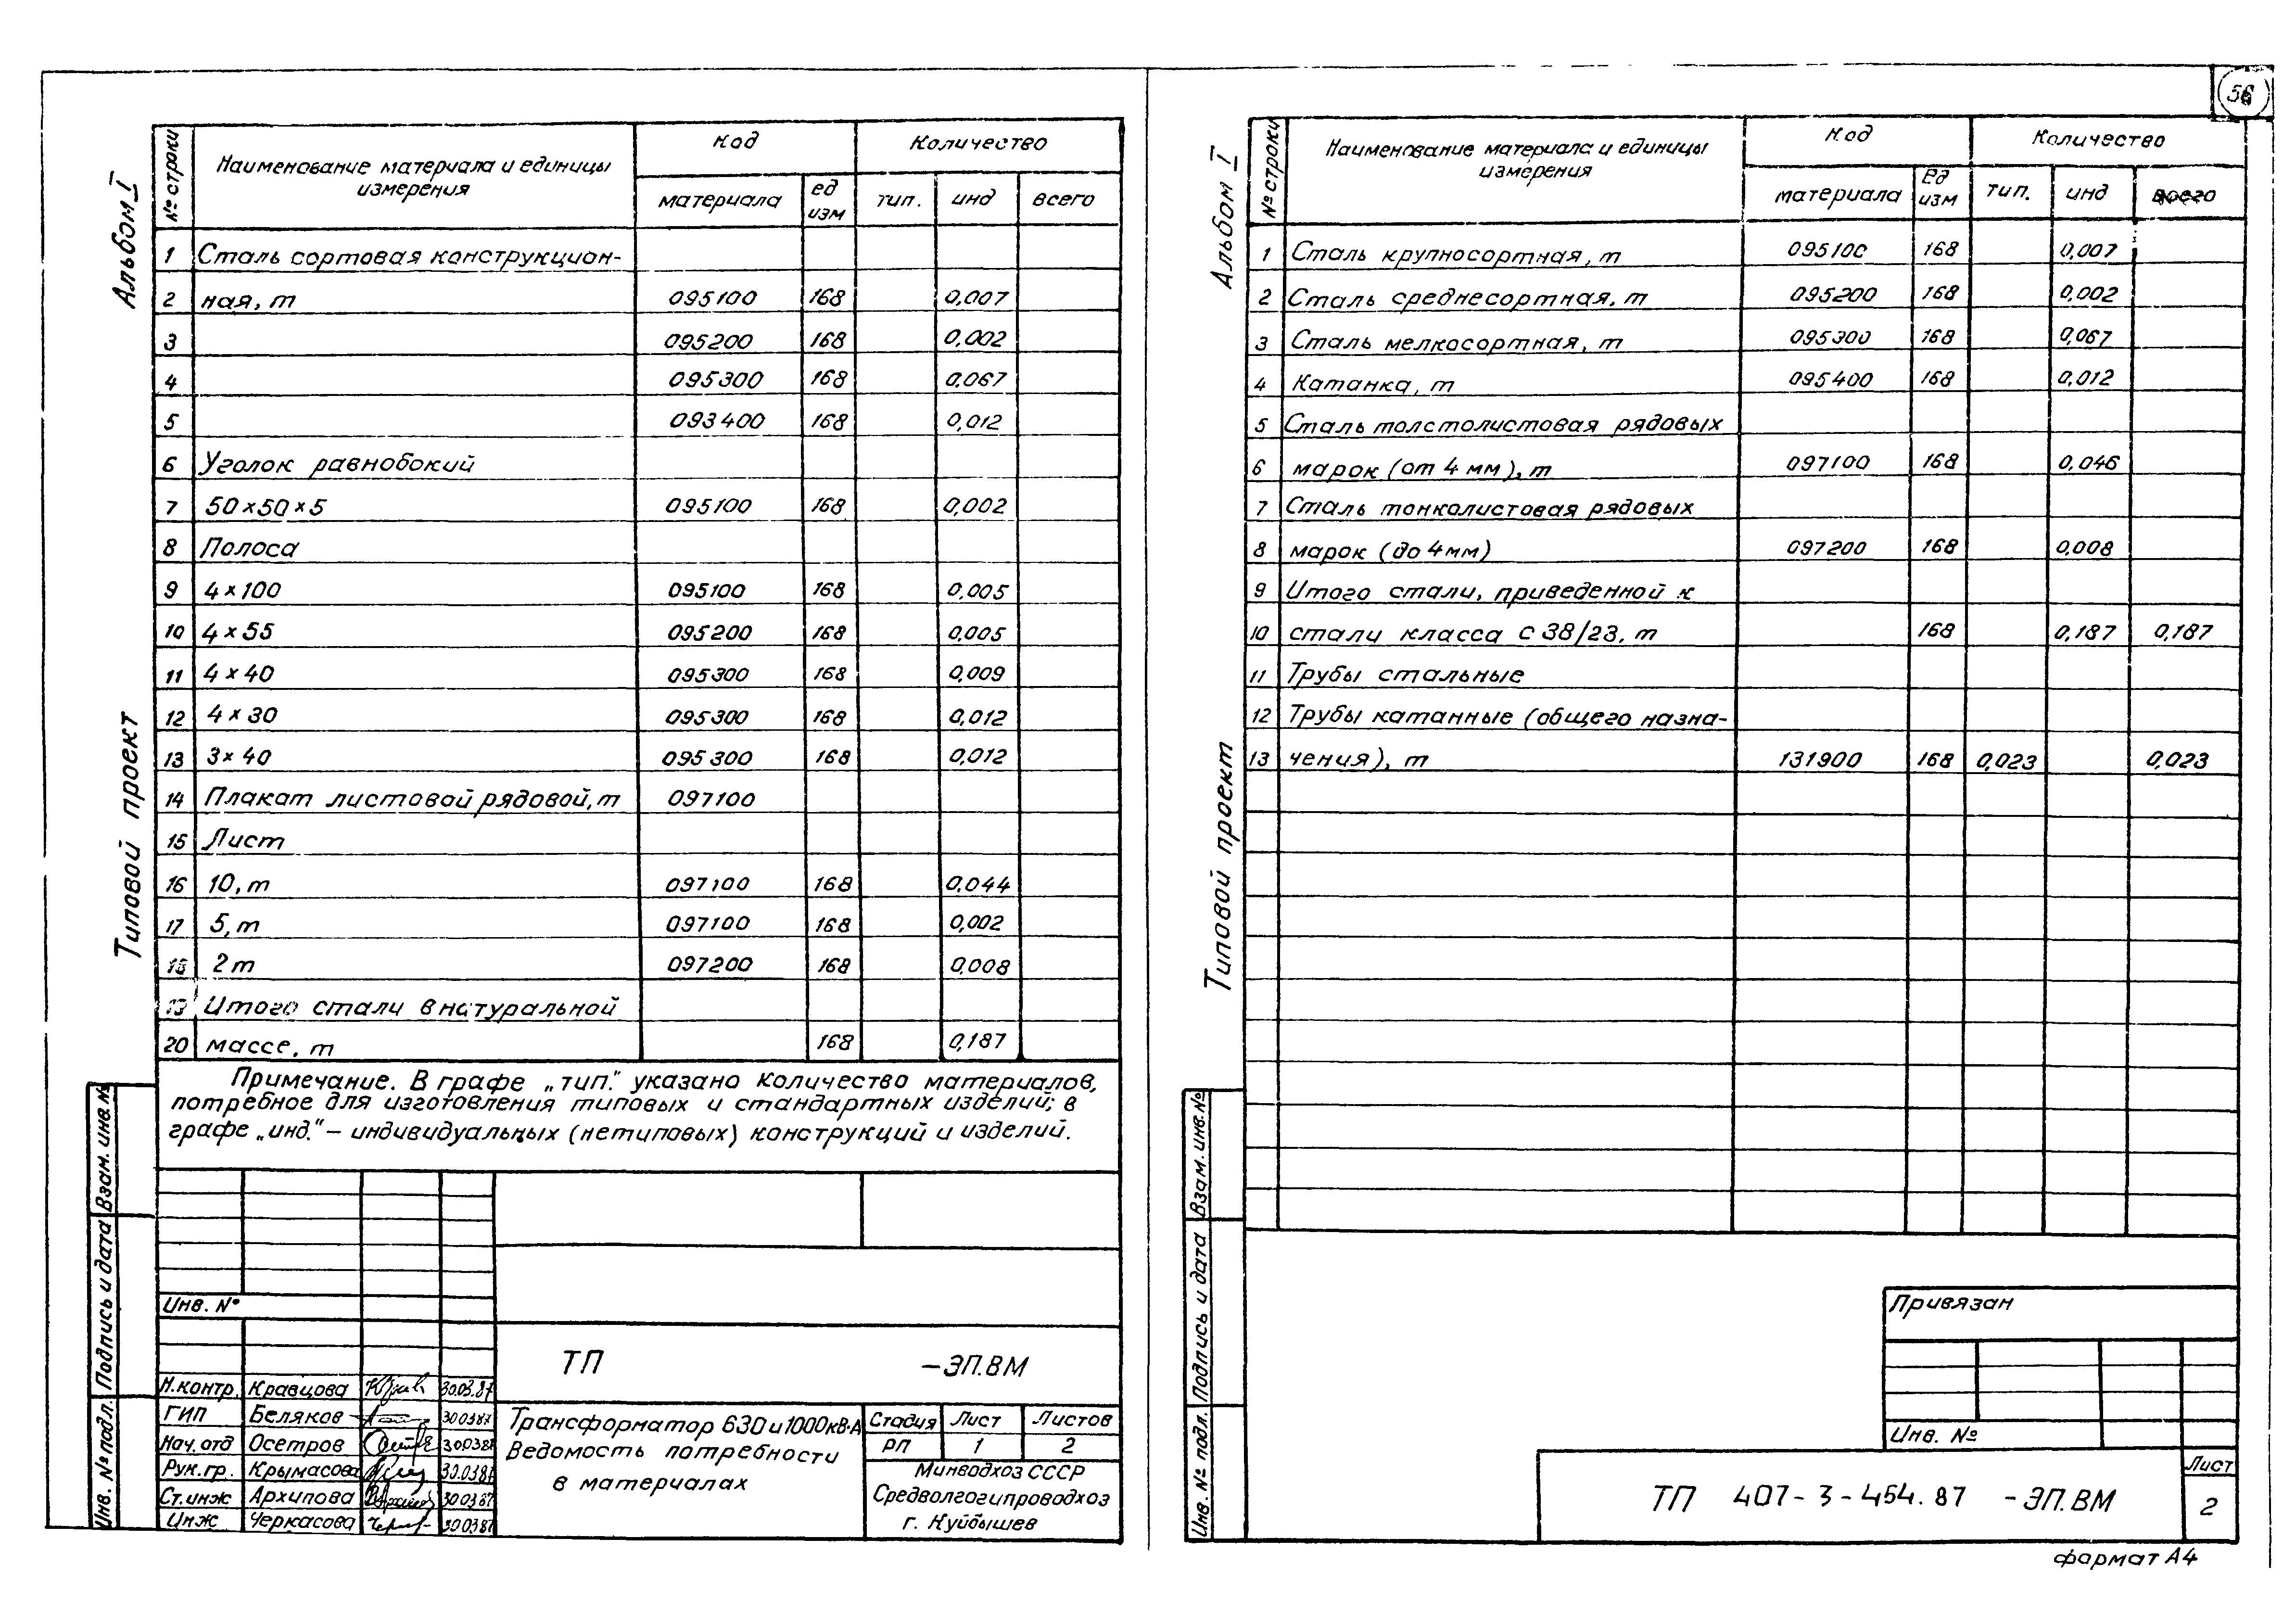 56
Альбом I
Типовой проект
№ строки
Наименование материала и единицы измерения
Код
Количество
материала
ед изм
тип.
инд
всего
1 Сталь сортовая конструкцион-
2 ная, т 095100 168 0,007
3 095200 168 0,002
4 095300 168 0,067
5 093400 168 0,012
6 Уголок равнобокий
7 50×50×5 095100 168 0,002
8 Полоса
9 4×100 095100 168 0,005
10 4×55 095200 168 0,005
11 4×40 095300 168 0,009
12 4×30 095300 168 0,012
13 3×40 095300 168 0,012
14 Плакат листовой рядовой, т 097100
15 Лист
16 10, т 097100 168 0,044
17 5, т 097100 168 0,002
18 2т 097200 168 0,008
19 Итого стали в натуральной
20 массе, т 168 0,187
Примечание. В графе „тип." указано количество материалов,
потребное для изготовления типовых и стандартных изделий; в
графе „инд." – индивидуальных (нетиповых) конструкций и изделий.
Инв. № подл. Подпись и дата Взам. инв. №
Инв. №
ТП -ЭП.ВМ
Н.контр. Кравцова 30.03.87
ГИП Беляков 300387
Нач.отд Осетров 300387
Рук.гр. Крымасова 30.0387
Ст.инж Архипова 300387
Инж Черкасова 300387
Трансформатор 630 и 1000 кВ·А
Ведомость потребности
в материалах
Стадия Лист Листов
РП 1 2
Минводхоз СССР
Средволгогипроводхоз
г. Куйбышев
Альбом I
Типовой проект
№ строки
Наименование материала и единицы
измерения
Код
Количество
материала
Ед изм
тип.
инд
всего
1 Сталь крупносортная, т 095100 168 0,007
2 Сталь среднесортная, т 095200 168 0,002
3 Сталь мелкосортная, т 095300 168 0,067
4 Катанка, т 095400 168 0,012
5 Сталь толстолистовая рядовых
6 марок (от 4 мм), т 097100 168 0,046
7 Сталь тонколистовая рядовых
8 марок (до 4мм) 097200 168 0,008
9 Итого стали, приведенной к
10 стали класса с 38/23, т 168 0,187 0,187
11 Трубы стальные
12 Трубы катанные (общего назна-
13 чения), т 131900 168 0,023 0,023
Инв. № подл. Подпись и дата Взам. инв. №
Привязан
Инв. №
ТП 407-3-454.87 -ЭП.ВМ
Лист
2
формат А4